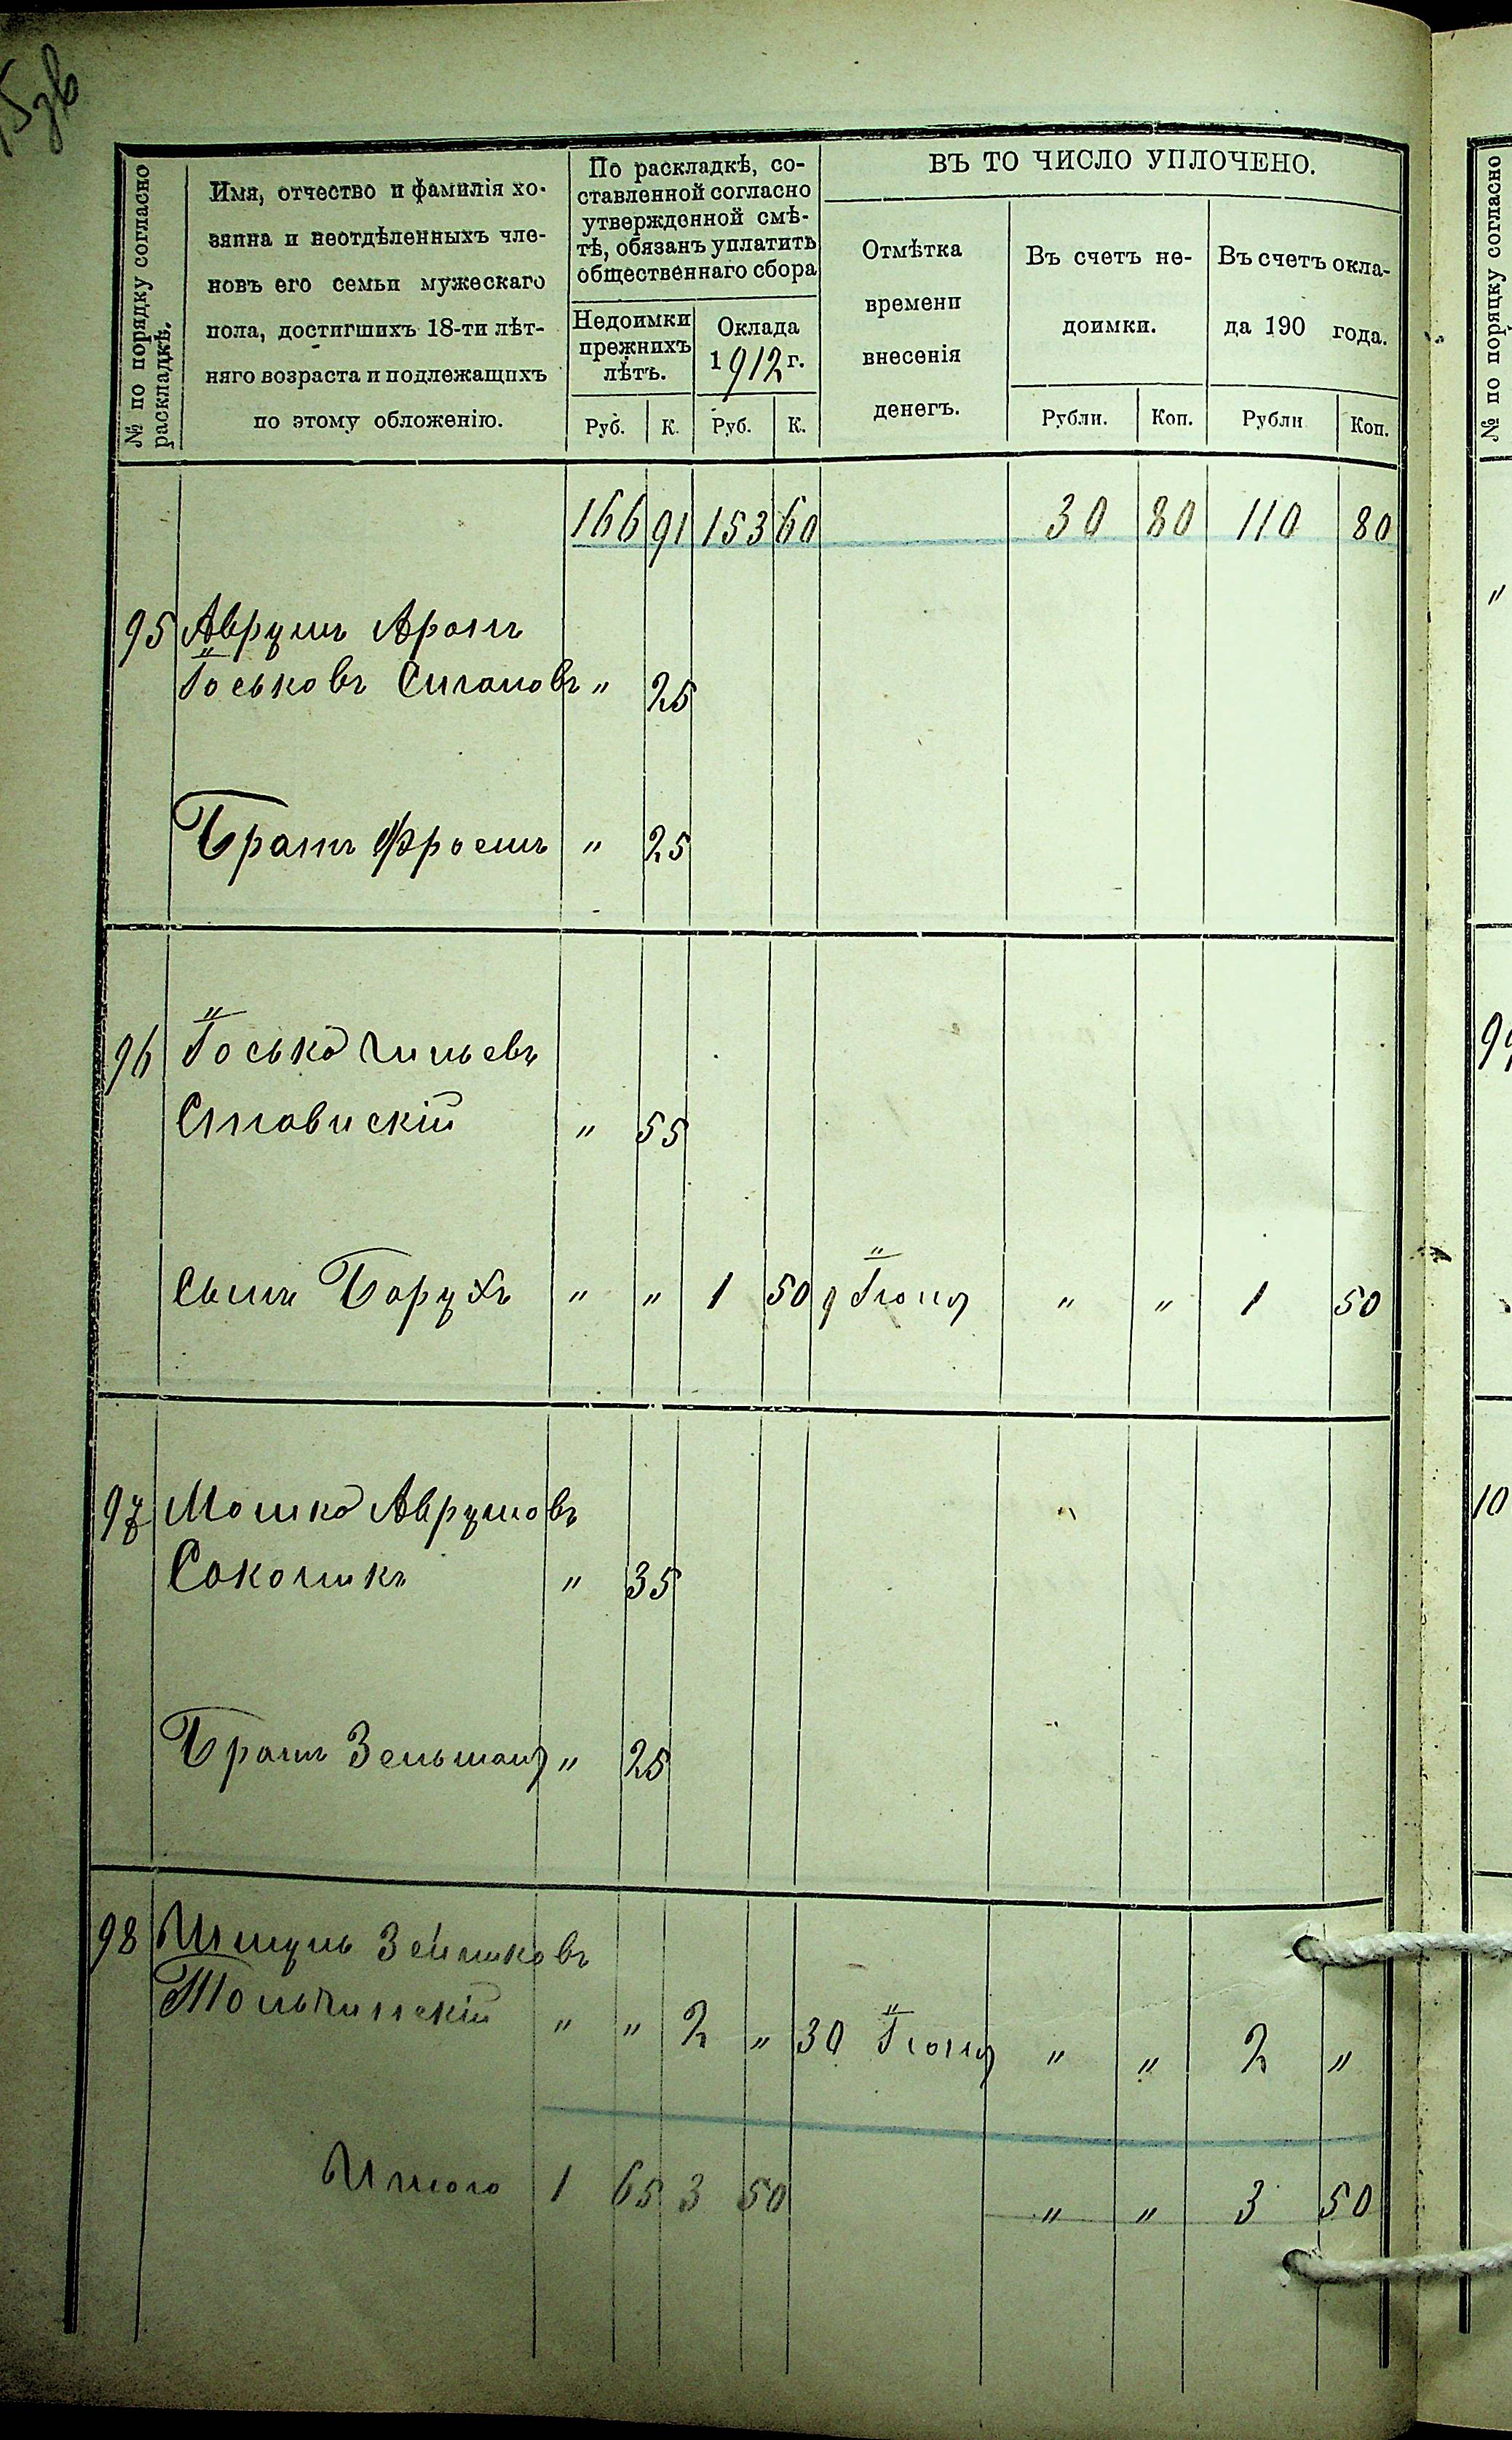 № по порядку согласно раскладкѣ.
Имя, отчество и фамилія хо-
зяина и неотдѣленныхъ чле-
новъ его семьи мужескаго
пола, достигшихъ 18-ти лѣт-
няго возраста и подлежащихъ
по этому обложенію.
По раскладкѣ, со-
ставленной согласно
утвержденной смѣ-
тѣ, обязанъ уплатить
общественнаго сбора
Недоимки
прежнихъ
лѣтъ.
Оклада
1912 г.
ВЪ ТО ЧИСЛО УПЛОЧЕНО.
Отмѣтка
времени
внесенія
денегъ.
Въ счетъ не-
доимки.
Въ счетъ окла-
да 190 года.
Руб. К. Руб. К. Рубли. Коп. Рубли Коп.
166 91 153 60 30 80 110 80
95 Аврумъ Аронъ
Іоськовъ " 25
Братъ Фроимъ " 25
96 Іосько
" 55
Сынъ Борухъ " " 1 50 9 Іюня " " 1 50
97 Мошко Аврумовъ
Соколикъ " 35
Братъ Зельманъ " 25
98 Шмуль Зейликовъ
Тольчинскій " " 2 " 30 Іюня " " 2 "
Итого 1 65 3 50 " " 3 50
№ по порядку согласно
"
10